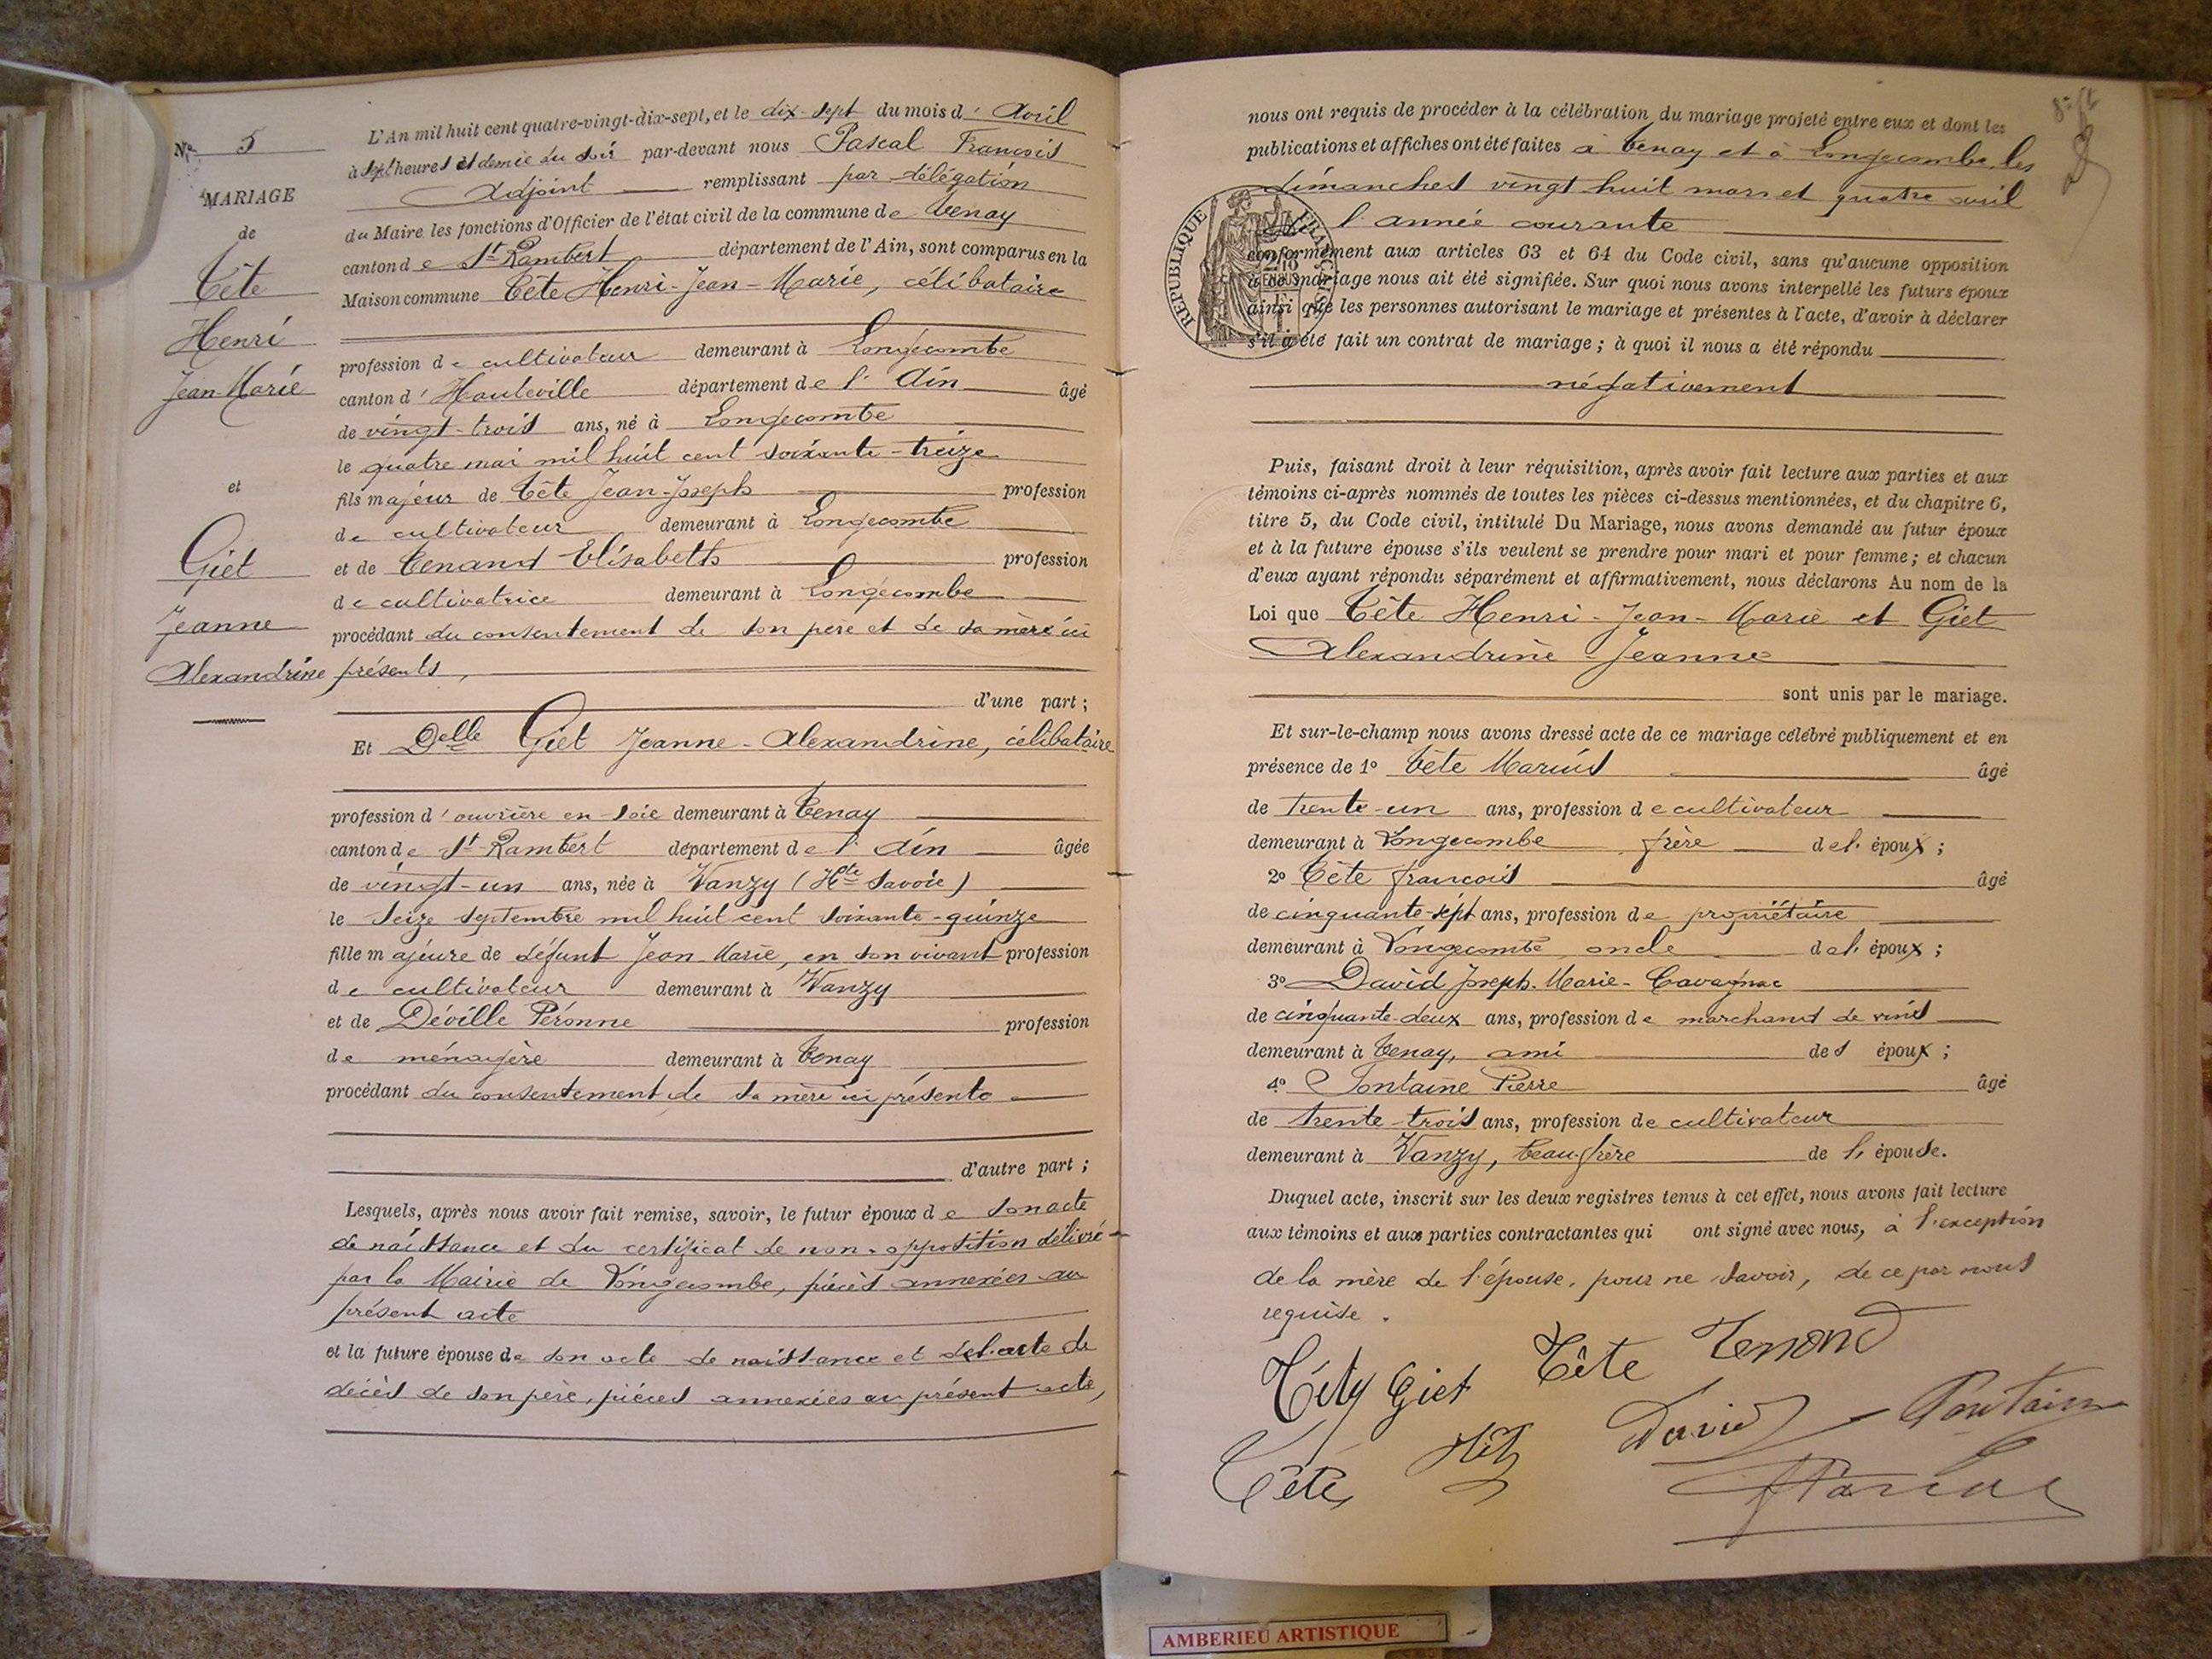 N° 5
MARIAGE
de
Tête
Henri
Jean-Marie
et
Giet
Jeanne
Alexandrine
L'An mil huit cent quatre-vingt-dix-sept, et le dix-sept du mois d'Avril
à sept heures et demie du soir par-devant nous Pascal François
Adjoint remplissant par délégation
du Maire les fonctions d'Officier de l'état civil de la commune de Tenay
canton de St-Rambert département de l'Ain, sont comparus en la
Maison commune Tête Henri-Jean-Marie, célibataire
profession de cultivateur demeurant à Longecombe
canton d'Hauteville département de l'Ain âgé
de vingt-trois ans, né à Longecombe
le quatre mai mil huit cent soixante-treize
fils majeur de Tête Jean-Joseph profession
de cultivateur demeurant à Longecombe
et de Tenand Elisabeth profession
de cultivatrice demeurant à Longecombe
procédant du consentement de son père et de sa mère ici
présents,
d'une part ;
Et Delle Giet Jeanne-Alexandrine, célibataire
profession d'ouvrière en soie demeurant à Tenay
canton de St-Rambert département de l'Ain âgée
de vingt-un ans, née à Vanzy (Hte Savoie)
le seize septembre mil huit cent soixante-quinze
fille majeure de défunt Jean-Marie, en son vivant profession
de cultivateur demeurant à Vanzy
et de Déville Péronne profession
de ménagère demeurant à Tenay
procédant du consentement de sa mère ici présente
d'autre part ;
Lesquels, après nous avoir fait remise, savoir, le futur époux de son acte
de naissance et du certificat de non-opposition délivré
par la Mairie de Longecombe, pièces annexées au
présent acte
et la future épouse de son acte de naissance et de l'acte de
décès de son père, pièces annexées au présent acte,
nous ont requis de procéder à la célébration du mariage projeté entre eux et dont les
publications et affiches ont été faites à Tenay et à Longecombe les
dimanches vingt huit mars et quatre avril
de l'année courante
conformément aux articles 63 et 64 du Code civil, sans qu'aucune opposition
à ce mariage nous ait été signifiée. Sur quoi nous avons interpellé les futurs époux
ainsi que les personnes autorisant le mariage et présentes à l'acte, d'avoir à déclarer
s'il a été fait un contrat de mariage ; à quoi il nous a été répondu
négativement
REPUBLIQUE FRANÇAISE
Puis, faisant droit à leur réquisition, après avoir fait lecture aux parties et aux
témoins ci-après nommés de toutes les pièces ci-dessus mentionnées, et du chapitre 6,
titre 5, du Code civil, intitulé Du Mariage, nous avons demandé au futur époux
et à la future épouse s'ils veulent se prendre pour mari et pour femme ; et chacun
d'eux ayant répondu séparément et affirmativement, nous déclarons Au nom de la
Loi que Tête Henri-Jean-Marie et Giet
Alexandrine-Jeanne
sont unis par le mariage.
Et sur-le-champ nous avons dressé acte de ce mariage célébré publiquement et en
présence de 1° Tête Marius âgé
de trente-un ans, profession de cultivateur
demeurant à Longecombe frère de l'époux ;
2° Tête François âgé
de cinquante-sept ans, profession de propriétaire
demeurant à Longecombe oncle de l'époux ;
3° David Joseph-Marie-Cavagnac
de cinquante-deux ans, profession de marchand de vins
demeurant à Tenay, ami des époux ;
4° Fontaine Pierre âgé
de trente-trois ans, profession de cultivateur
demeurant à Vanzy, beau-frère de l'épouse.
Duquel acte, inscrit sur les deux registres tenus à cet effet, nous avons fait lecture
aux témoins et aux parties contractantes qui ont signé avec nous, à l'exception
de la mère de l'épouse, pour ne savoir, de ce par nous
requise.
Giet Tête Tenand
David Fontaine
Tête
AMBERIEU ARTISTIQUE